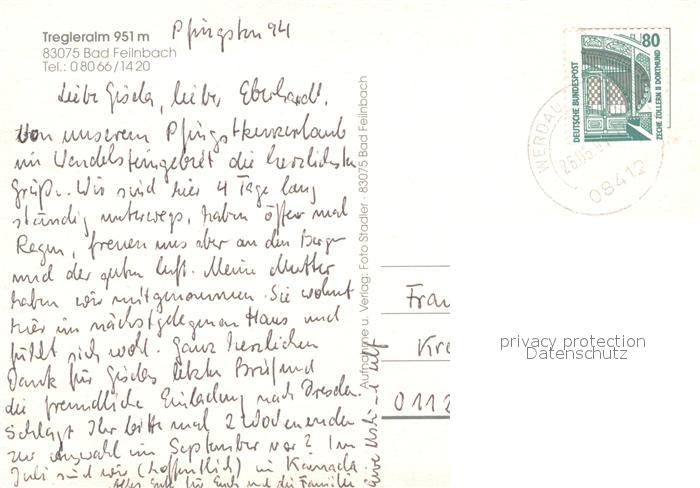 Tregleralm 951 m
83075 Bad Feilnbach
Tel.: 0 80 66/14 20
Pfingsten 94
Liebe Gisela, lieber Eberhardt,
von unserem Pfingstkurzurlaub
im Wendelsteingebiet die herzlichsten
Grüße. Wir sind hier 4 Tage lang
ständig unterwegs, haben öfter mal
Regen, freuen uns aber an den Bergen
und der guten Luft. Meine Mutter
haben wir mitgenommen. Sie wohnt
hier im nächstgelegenen Haus und
fühlt sich wohl. Ganz herzlichen
Dank für Giselas letzten Brief und
die freundliche Einladung nach Dresden.
Schlagt Ihr bitte mal 2 Wochenenden
zur Auswahl im September vor? Im
Juli sind wir (hoffentlich) in Kanada.
Alles Gute für Euch und die Familie
Eure
Aufnahme u. Verlag: Foto Stadler · 83075 Bad Feilnbach
80
DEUTSCHE BUNDESPOST
ZECHE ZOLLERN II DORTMUND
WERDAU
08412
Frau
Kre
0112
privacy protection
Datenschutz